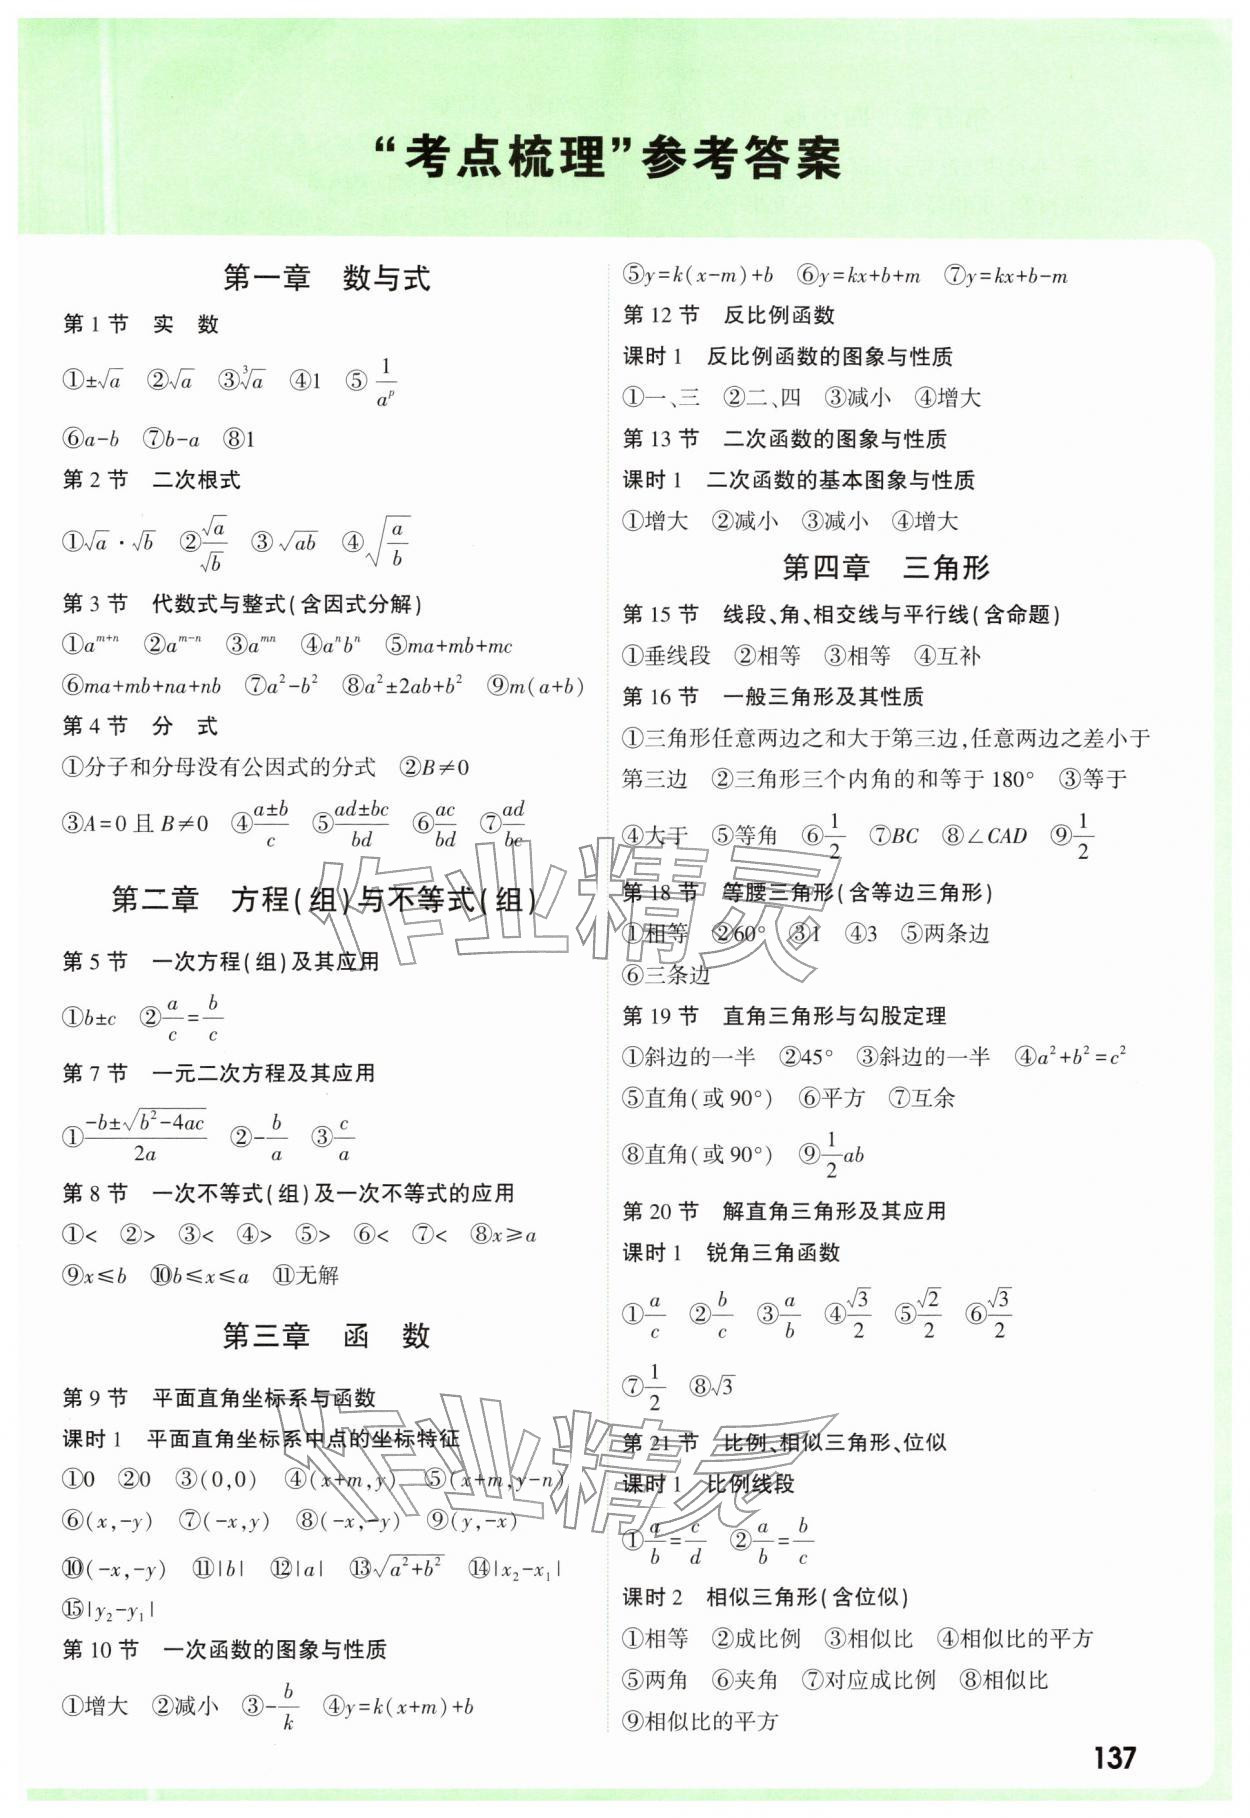 “考点梳理”参考答案
第一章 数与式
第1节 实 数
①±√a ②√a ③∛a ④1 ⑤1/a^p
⑥a-b ⑦b-a ⑧1
第2节 二次根式
①√a·√b ②√a/√b ③√(ab) ④√(a/b)
第3节 代数式与整式(含因式分解)
①a^(m+n) ②a^(m-n) ③a^(mn) ④a^n b^n ⑤ma+mb+mc
⑥ma+mb+na+nb ⑦a²-b² ⑧a²±2ab+b² ⑨m(a+b)
第4节 分 式
①分子和分母没有公因式的分式 ②B≠0
③A=0且B≠0 ④(a±b)/c ⑤(ad±bc)/bd ⑥ac/bd ⑦ad/bc
第二章 方程(组)与不等式(组)
第5节 一次方程(组)及其应用
①b±c ②a/c=b/c
第7节 一元二次方程及其应用
①(-b±√(b²-4ac))/2a ②-b/a ③c/a
第8节 一次不等式(组)及一次不等式的应用
①< ②> ③< ④> ⑤> ⑥< ⑦< ⑧x≥a
⑨x≤b ⑩b≤x≤a ⑪无解
第三章 函 数
第9节 平面直角坐标系与函数
课时1 平面直角坐标系中点的坐标特征
①0 ②0 ③(0,0) ④(x+m,y) ⑤(x+m,y-n)
⑥(x,-y) ⑦(-x,y) ⑧(-x,-y) ⑨(y,-x)
⑩(-x,-y) ⑪|b| ⑫|a| ⑬√(a²+b²) ⑭|x₂-x₁|
⑮|y₂-y₁|
第10节 一次函数的图象与性质
①增大 ②减小 ③-b/k ④y=k(x+m)+b
⑤y=k(x-m)+b ⑥y=kx+b+m ⑦y=kx+b-m
第12节 反比例函数
课时1 反比例函数的图象与性质
①一、三 ②二、四 ③减小 ④增大
第13节 二次函数的图象与性质
课时1 二次函数的基本图象与性质
①增大 ②减小 ③减小 ④增大
第四章 三角形
第15节 线段、角、相交线与平行线(含命题)
①垂线段 ②相等 ③相等 ④互补
第16节 一般三角形及其性质
①三角形任意两边之和大于第三边,任意两边之差小于
第三边 ②三角形三个内角的和等于180° ③等于
④大于 ⑤等角 ⑥1/2 ⑦BC ⑧∠CAD ⑨1/2
第18节 等腰三角形(含等边三角形)
①相等 ②60° ③1 ④3 ⑤两条边
⑥三条边
第19节 直角三角形与勾股定理
①斜边的一半 ②45° ③斜边的一半 ④a²+b²=c²
⑤直角(或90°) ⑥平方 ⑦互余
⑧直角(或90°) ⑨1/2ab
第20节 解直角三角形及其应用
课时1 锐角三角函数
①a/c ②b/c ③a/b ④√3/2 ⑤√2/2 ⑥√3/2
⑦1/2 ⑧√3
第21节 比例、相似三角形、位似
课时1 比例线段
①a/b=c/d ②a/b=b/c
课时2 相似三角形(含位似)
①相等 ②成比例 ③相似比 ④相似比的平方
⑤两角 ⑥夹角 ⑦对应成比例 ⑧相似比
⑨相似比的平方
137
作业精灵
作业精灵